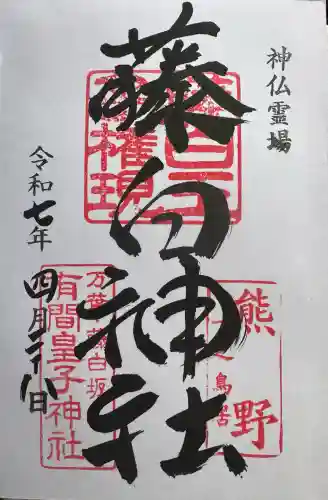 神仏霊場
藤白神社
令和七年
四月二十八日
権現
熊野
鳥居
万葉 藤白坂
有間皇子神社